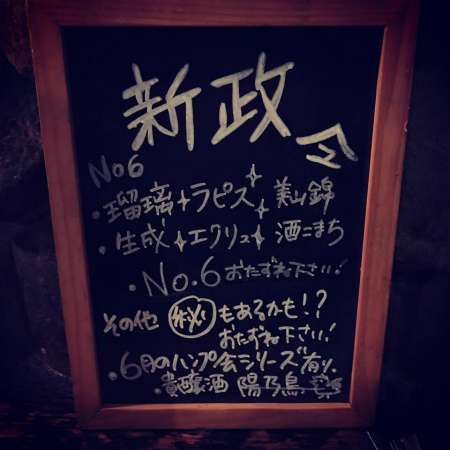 新政
No6
・瑠璃✧ラピス✧ 美山錦
・生成✧エクリュ✧ 酒こまち
・No.6 おたずね下さい!
その他 ㊙もあるかも!?
おたずね下さい!
・6月のハンプ会シリーズ有り。
・貴醸酒 陽乃鳥